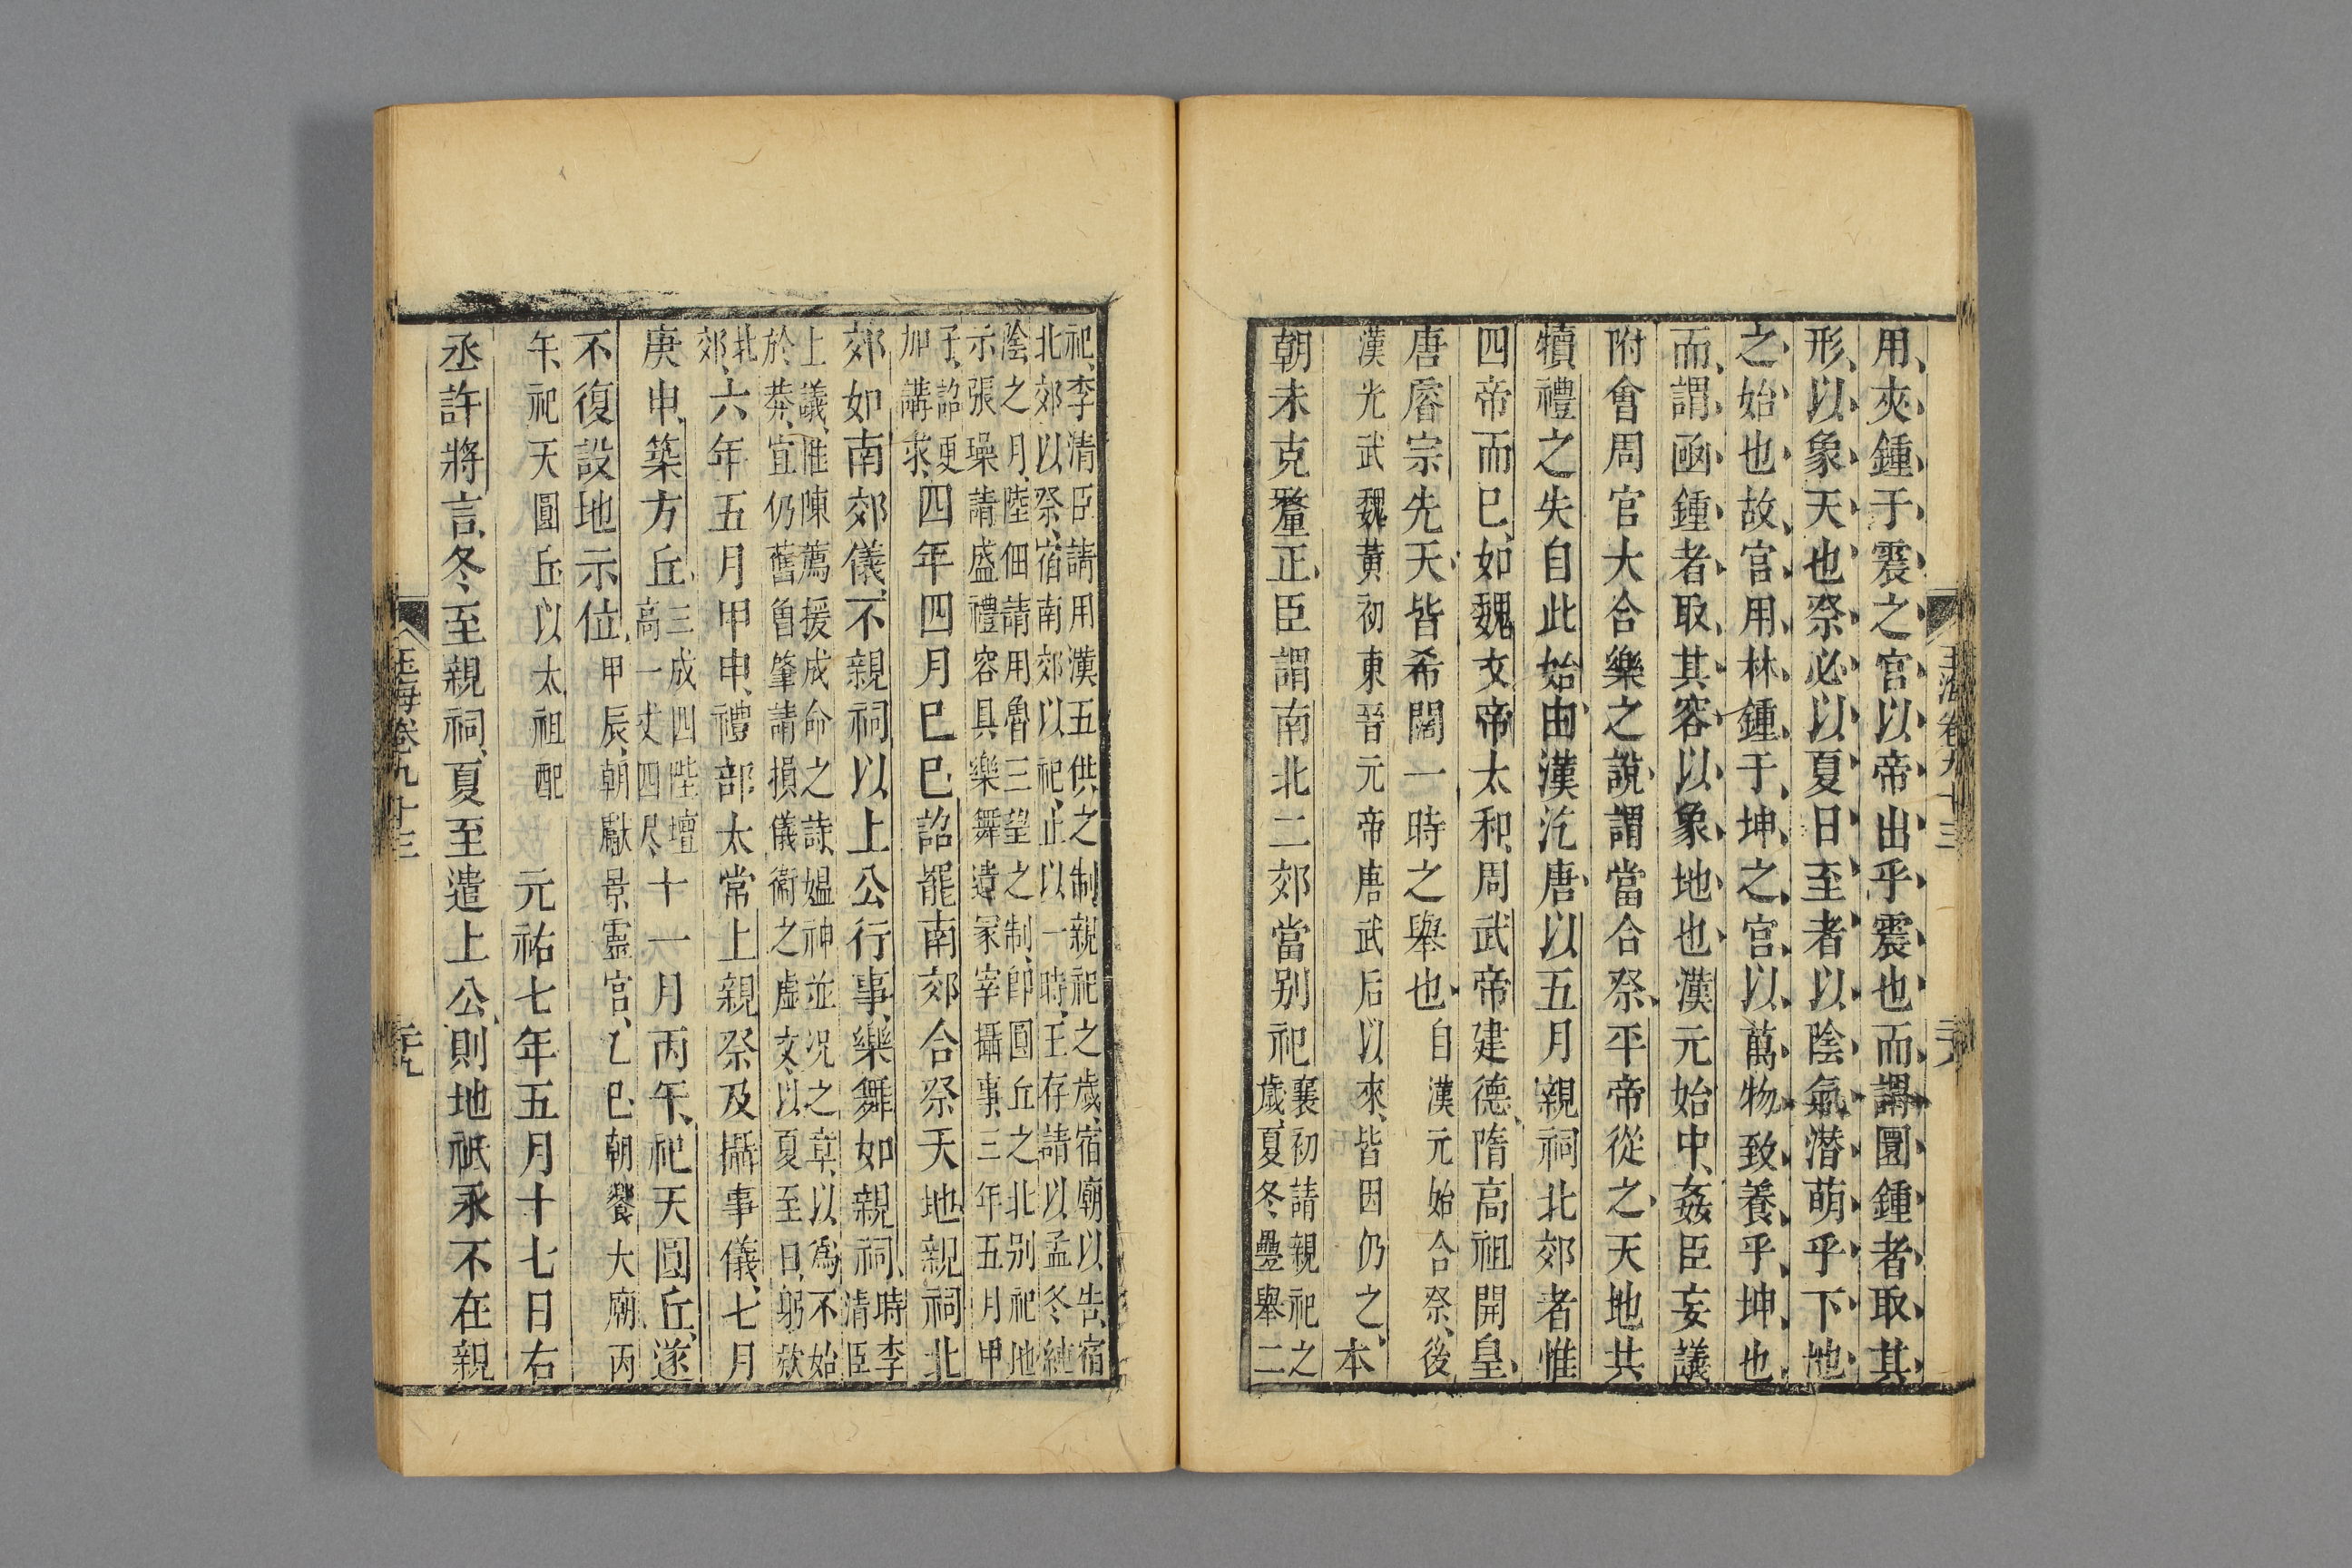 用夾鍾于震之宮以帝出乎震也而謂圜鍾者取其
形以象天也祭必以夏日至者以陰氣潛萌乎下地
之始也故宮用林鍾于坤之宮以萬物致養乎坤也
而謂函鍾者取其容以象地也漢元始中姦臣妄議
附會周官大合樂之說謂當合祭平帝從之天地共
犢禮之失自此始由漢汔唐以五月親祠北郊者惟
四帝而巳如魏文帝太和周武帝建德隋高祖開皇
唐睿宗先天皆希闊一時之舉也自漢元始合祭後
漢光武魏黃初東晉元帝唐武后以來皆因仍之本
朝未克釐正臣謂南北二郊當別祀襄初請親祀之
歲夏冬疊舉二
祀李清臣請用漢五供之制親祀之歲宿廟以告宿
北郊以祭宿南郊以祀止以一時王存請以孟冬純
陰之月陸佃請用魯三望之制即圓丘之北別祀地
示張璪請盛禮容具樂舞遣冢宰攝事三年五月甲
子詔更
加講求四年四月巳巳詔罷南郊合祭天地親祠北
郊如南郊儀不親祠以上公行事樂舞如親祠時李
清臣
上議惟陳薦援成命之詩媼神並况之章以爲不始
於莽宜仍舊曾肇請損儀衞之虛文以夏至日躬欬
北
郊六年五月甲申禮部太常上親祭及攝事儀七月
庚申築方丘三成四陛壇
高一丈四尺十一月丙午祀天圓丘遂
不復設地示位甲辰朝獻景靈宮乙巳朝饗大廟丙
午祀天圓丘以太祖配 元祐七年五月十七日右
丞許將言冬至親祠夏至遣上公則地祇永不在親
玉海卷九十三
玉海卷九十三